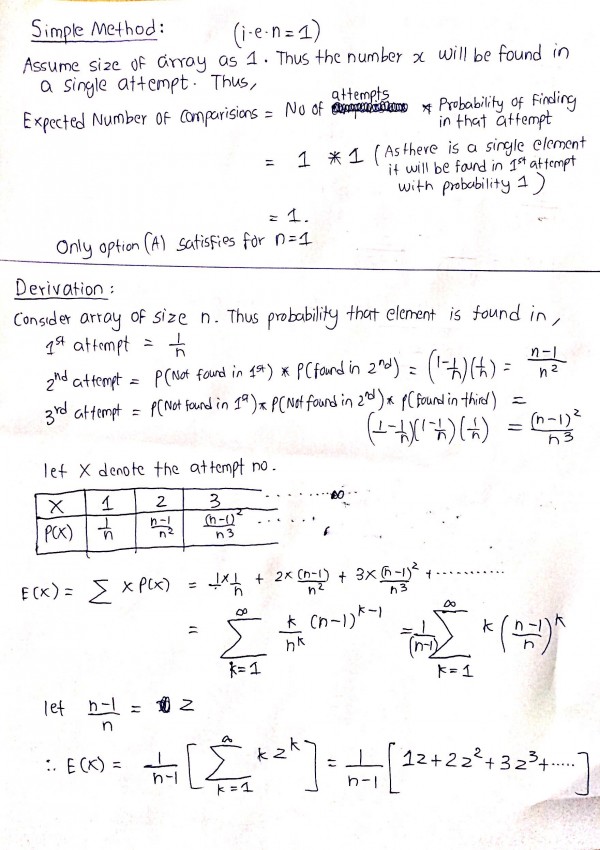 Simple Method: (i.e. n=1)
Assume size of array as 1. Thus the number x will be found in
a single attempt. Thus,
Expected Number of comparisions = No of attempts * Probability of Finding
in that attempt
= 1 * 1 (As there is a single element
it will be found in 1st attempt
with probability 1)
= 1.
Only option (A) satisfies for n=1
Derivation:
Consider array of size n. Thus probability that element is found in,
1st attempt = 1/n
2nd attempt = P(Not found in 1st) * P(found in 2nd) = (1-1/n)(1/n) = (n-1)/n²
3rd attempt = P(Not found in 1st) * P(Not found in 2nd) * P(found in third) =
(1-1/n)(1-1/n)(1/n) = (n-1)²/n³
let X denote the attempt no.
X 1 2 3 ........ ∞
P(X) 1/n (n-1)/n² (n-1)²/n³ ......
E(X) = ∑ X P(X) = 1×1/n + 2×(n-1)/n² + 3×(n-1)²/n³ + ...........
= ∑_{k=1}^{∞} k/n^k (n-1)^{k-1} = 1/(n-1) ∑_{k=1}^{∞} k ((n-1)/n)^k
let (n-1)/n = z
∴ E(X) = 1/(n-1) [∑_{k=1}^{∞} k z^k] = 1/(n-1) [1z+2z²+3z³+.....]